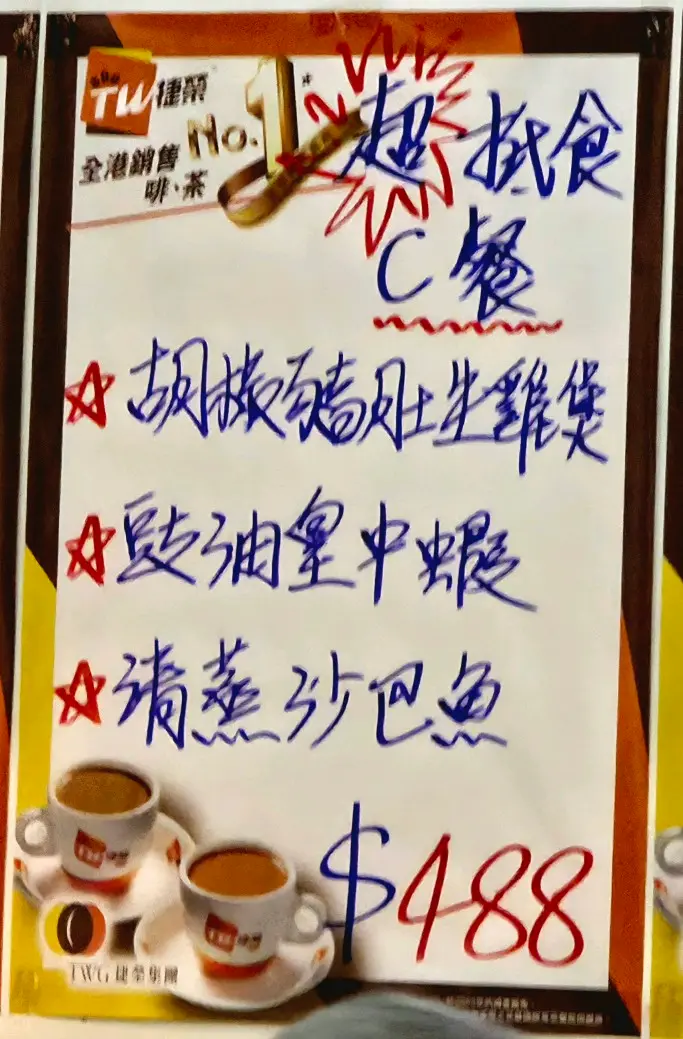 TW捷榮
全港銷售
No.1
啡、茶
超抵食
C餐
☆胡椒豬肚生雞煲
☆豉油皇中蝦
☆清蒸沙巴魚
$488
TW捷榮
TW捷榮
TWG 捷榮集團